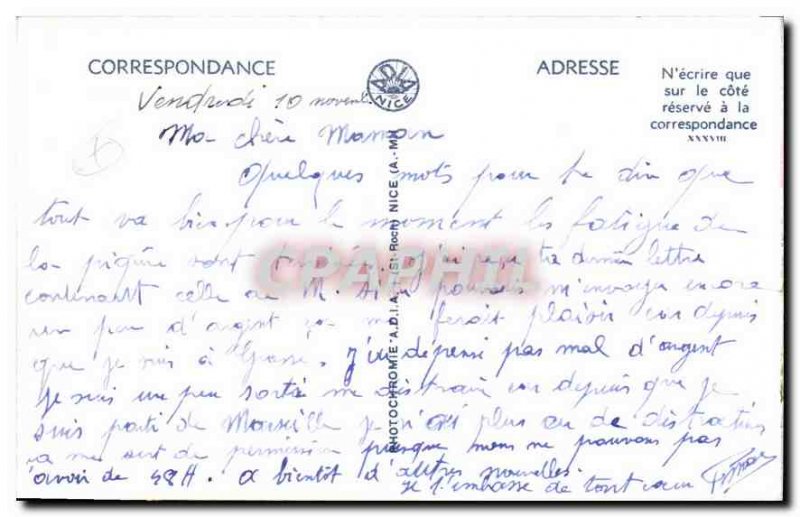 CORRESPONDANCE
ADIA
NICE
ADRESSE
N'écrire que
sur le côté
réservé à la
correspondance
XXXVIII
PHOTOCHROMIE A.D.I.A. (St-Roch) NICE (A.-M.)
CPAPHIL
Vendredi 10 novemb
Ma chère Maman
Quelques mots pour te dire que
tout va bien pour le moment les fatigue de
la piqûre sont j'ai reçu ta dernière lettre
contenant celle de M. Si tu pouvais m'envoyer encore
un peu d'argent ça me ferait plaisir car depuis
que je suis à Grasse. J'ai dépensé pas mal d'argent
je suis un peu sorti me distraire car depuis que je
suis parti de Marseille je n'ai plus eu de distraction
ça me sert de permission puisque nous ne pouvons pas
avoir de 48H. a bientôt d'autres nouvelles.
Je t'embrasse de tout cœur